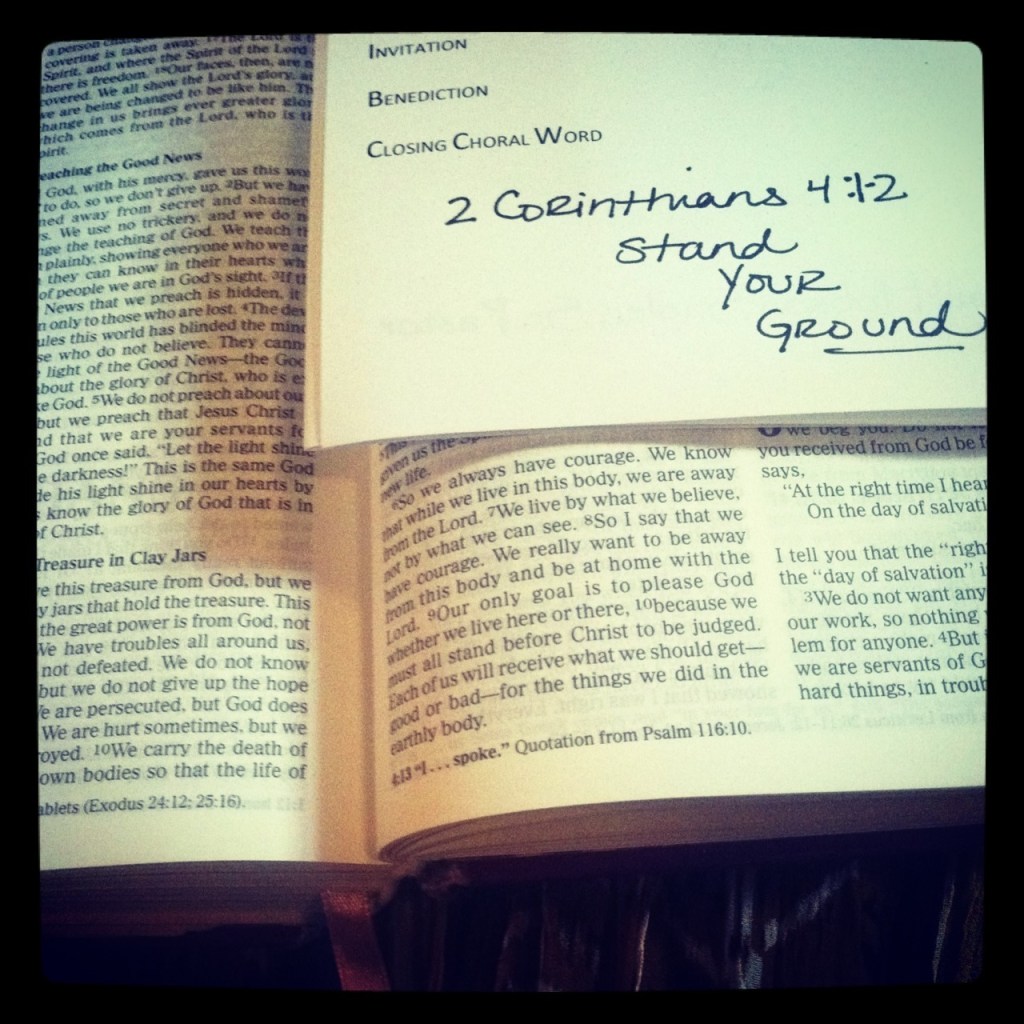 a person
covering is taken away. 17The Lord is
Spirit, and where the Spirit of the Lord
there is freedom. 18Our faces, then, are
covered. We all show the Lord's glory,
we are being changed to be like him.
change in us brings ever greater
which comes from the Lord, who is
pirit.
eaching the Good News
God, with his mercy, gave us this
to do, so we don't give up. 2But we
ned away from secret and
s. We use no trickery, and we do
nge the teaching of God. We teach
plainly, showing everyone who we
they can know in their hearts
of people we are in God's sight. 3If
News that we preach is hidden, it
n only to those who are lost. 4The
ules this world has blinded the
se who do not believe. They
light of the Good News—the
about the glory of Christ, who is
ke God. 5We do not preach about
but we preach that Jesus Christ
nd that we are your servants
God once said, "Let the light shine
e darkness!" This is the same God
de his light shine in our hearts by
know the glory of God that is in
f Christ.
Treasure in Clay Jars
e this treasure from God, but we
y jars that hold the treasure. This
the great power is from God, not
We have troubles all around us,
not defeated. We do not know
but we do not give up the hope
e are persecuted, but God does
We are hurt sometimes, but we
royed. 10We carry the death of
own bodies so that the life of
ablets (Exodus 24:12; 25:16).
INVITATION
BENEDICTION
CLOSING CHORAL WORD
2 Corinthians 4:1-2
Stand
Your
Ground
given us the
new life.
6So we always have courage. We know
that while we live in this body, we are away
from the Lord. 7We live by what we believe,
not by what we can see. 8So I say that we
have courage. We really want to be away
from this body and be at home with the
Lord. 9Our only goal is to please God
whether we live here or there, 10because we
must all stand before Christ to be judged.
Each of us will receive what we should get—
good or bad—for the things we did in the
earthly body.
4:13 "I . . . spoke." Quotation from Psalm 116:10.
we beg you: Do not
you received from God be
says,
"At the right time I
On the day of
I tell you that the
the "day of salvation"
3We do not want
our work, so nothing
lem for anyone. 4But
we are servants of
hard things, in